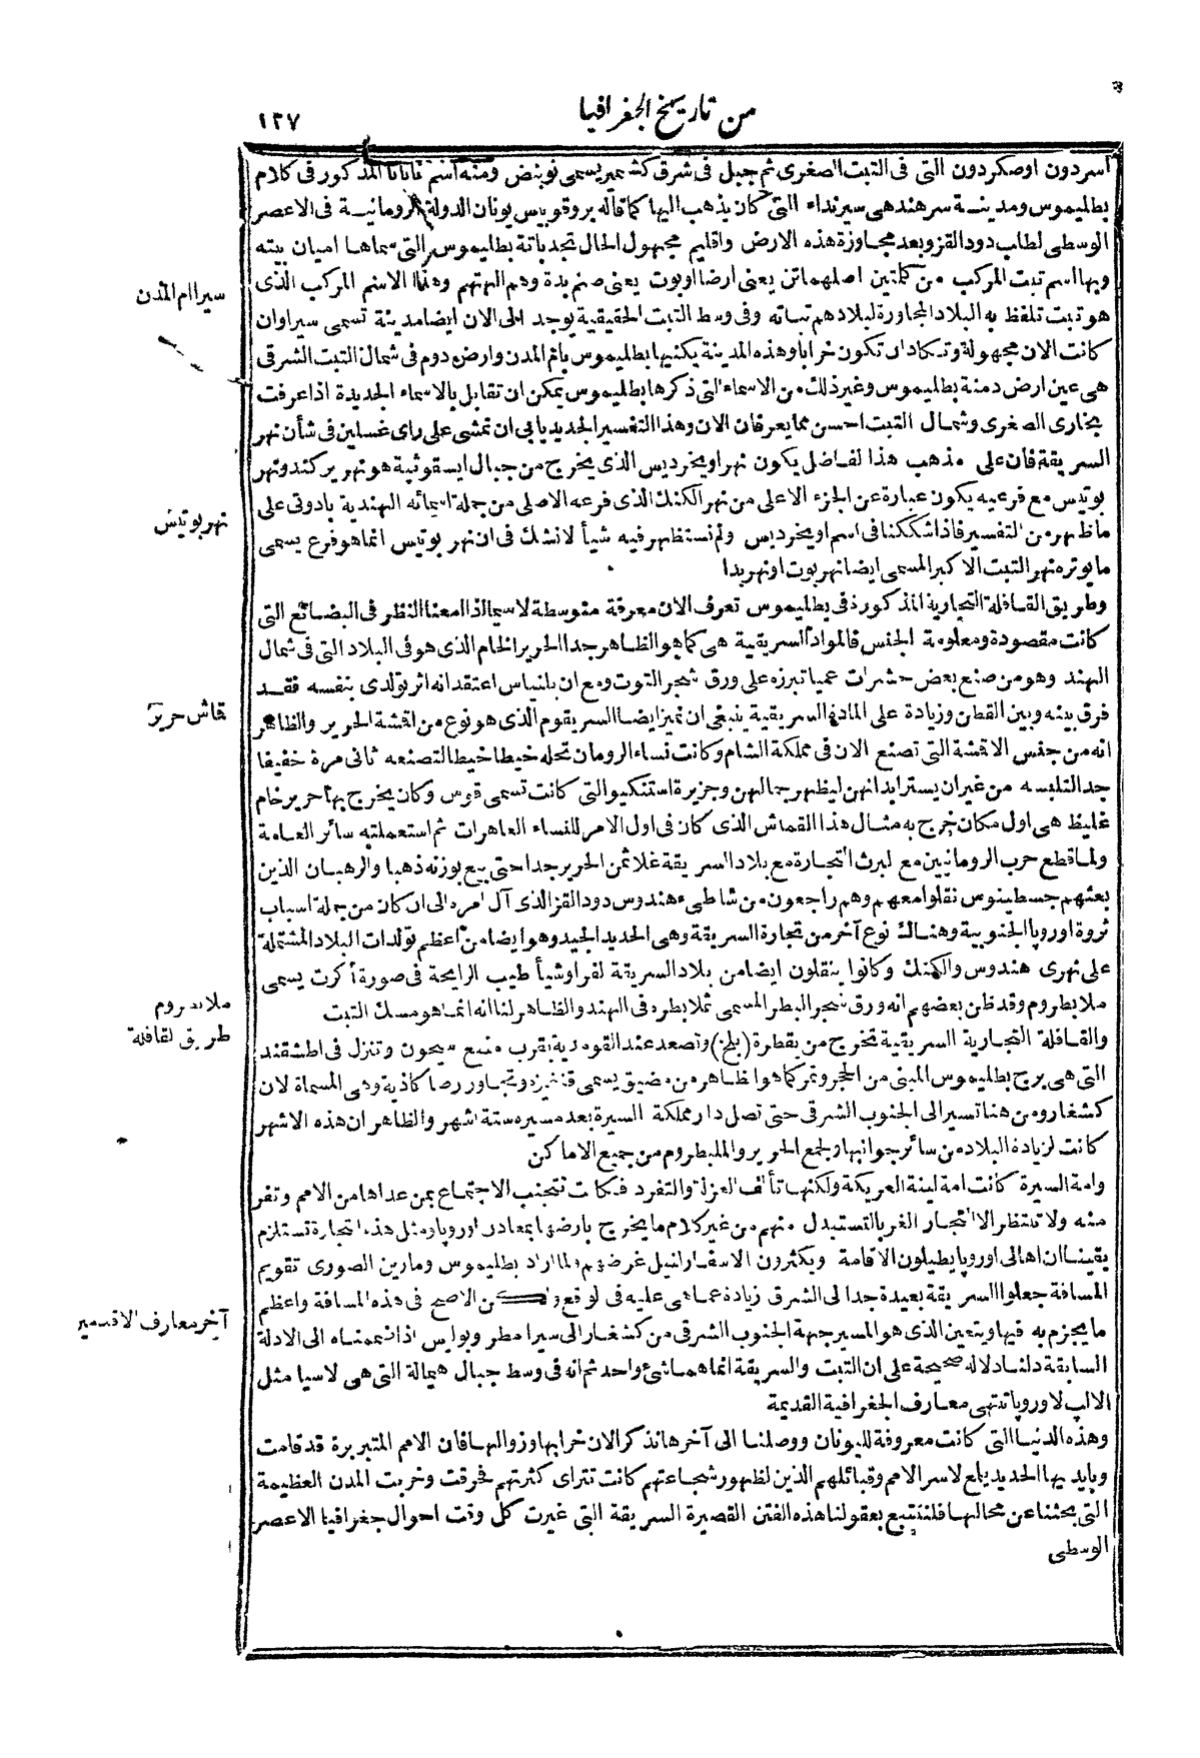 من تاريخ الجغرافيا
١٢٧
اسردون اوصكردون التى فى التبت الصغرى ثم جبل فى شرق كشمير يسمى نوبنض ومنه اسم المذكور فى كلام
بطليموس ومدينة سرهند هى سيرنداء التى كان يذهب اليها كما قاله بروقوبيس يونان الدولة الرومانية فى الاعصر
الوسطى لطلب دود القز وبعد مجاوزة هذه الارض واقليم مجهول الحال تجد باتة بطليموس التى سماها اميان بيته
وبها اسم تبت المركب من كلمتين اصلهما تن يعنى ارضا وبوت يعنى صنم بدة وهم الهتهم وهذا الاسم المركب الذى
سيرا ام المدن
هو تبت تلفظ به البلاد المجاورة لبلادهم تباته وفى وسط التبت الحقيقية يوجد الى الان ايضا مدينة تسمى سيراوان
كانت الان مجهولة وتكاد ان تكون خرابا وهذه المدينة يكنيها بطليموس بام المدن وارض دوم فى شمال التبت الشرقى
هى عين ارض دمنة بطليموس وغير ذلك من الاسماء التى ذكرها بطليموس يمكن ان تقابل بالاسماء الجديدة اذا عرفت
بخارى الصغرى وشمال التبت احسن مما يعرفان الان وهذا التفسير الجديد يابى ان تمشى على راى غسلين فى شأن نهر
السريقة فان على مذهب هذا الفاضل يكون نهر اويخرديس الذى يخرج من جبال ايسقوثية هو نهر يركند ونهر
بوتيس مع فرعيه يكون عبارة عن الجزء الاعلى من نهر الكنك الذى فرعه الاصلى من جملة اسمائه الهندية بادوتى على
نهر بوتيس
ما ظهر من التفسير فاذا شككنا فى اسم اويخرديس ولم نستظهر فيه شيأ لا نشك فى ان نهر بوتيس انما هو فرع يسمى
مابوتره نهر التبت الاكبر المسمى ايضا نهر بوت او نهر بدا
وطريق القافلة التجارية المذكورة فى بطليموس تعرف الان معرفة متوسطة لاسيما اذا امعنا النظر فى البضائع التى
كانت مقصودة ومعلومة الجنس فالمواد السريقية هى كما هو الظاهر جدا الحرير الخام الذى هو فى البلاد التى فى شمال
الهند وهو من صنع بعض حشرات عميا تبرزه على ورق شجر التوت ومع ان بلنياس اعتقد انه اثر تولدى بنفسه فقد
قماش حرير
فرق بينه وبين القطن وزيادة على المادة السريقية ينبغى ان نميز ايضا السريقوم الذى هو نوع من اقشة الحرير والظاهر
انه من جنس الاقشة التى تصنع الان فى مملكة الشام وكانت نساء الرومان تحله خيطا خيطا لتصنعه ثانى مرة خفيفا
جدا لتلبسه من غير ان يستر ابدانهن ليظهر جمالهن وجزيرة استنكيو التى كانت تسمى قوس وكان يخرج بها حرير خام
غليظ هى اول مكان خرج به مثال هذا القماش الذى كان فى اول الامر للنساء العاهرات ثم استعملته سائر العامة
ولما قطع حرب الرومانيين مع لبرث التجارة مع بلاد السريقة غلا ثمن الحرير جدا حتى بيع بوزنه ذهبا والرهبان الذين
بعثهم جسطينوس نقلوا معهم وهم راجعون من شاطى هندوس دود القز الذى آل امره الى ان كان من جملة اسباب
ثروة اوروپا الجنوبية وهناك نوع آخر من تجارة السريقة وهى الحديد الجيد وهو ايضا من اعظم تولدات البلاد المشتملة
على نهرى هندوس والكنك وكانوا ينقلون ايضا من بلاد السريقة لفراوشيأ طيب الرايحة فى صورة أكرت يسمى
ملابطروم وقد ظن بعضهم انه ورق شجر البطر المسمى تملا بطره فى الهند والظاهر لنا انه انما هو مسك التبت
ملابطروم
والقافلة التجارية السريقية تخرج من بقطرة (بلخ) وتصعد عند القومدية بقرب منبع سيحون وتنزل فى اطشقند
طريق القافلة
التى هى برج بطليموس المبنى من الحجر وتمر كما هو الظاهر من مضيق يسمى وتجاور رصا كاذية وهى المسماة الان
كشغار ومن هنا تسير الى الجنوب الشرقى حتى تصل دار مملكة السيرة بعد مسيره ستة اشهر والظاهر ان هذه الاشهر
كانت لزيادة البلاد من سائر جوانبها ولجمع الحرير والملبطروم من جميع الاماكن
وامة السيرة كانت امة لينة العريكة ولكنها تألف العزلة والتفرد فكانت تتجنب الاجتماع بمن عداها من الامم وتفر
منه ولا تنتظر الا التجار الغربا لتستبدل منهم من غير كلام ما يخرج بارضها بمعادن اوروپا ومثل هذه التجارة تستلزم
يقينا ان اهالى اوروپا يطيلون الاقامة ويكثرون الاسفار لنيل غرضهم ولما اراد بطليموس ومارين الصورى تقويم
المسافة جعلوا السريقة بعيدة جدا الى الشرق زيادة عما هى عليه فى لوقع ولكن الاصح فى هذه المسافة واعظم
آخر معارف الاقدمين
ما يجزم به فيها ويتعين الذى هو المسير جهة الجنوب الشرقى من كشغار الى سيرا مطر وبولس اذا نضمناه الى الادلة
السابقة دلنا دلالة صحيحة على ان التبت والسريقة انما هما شئ واحد ثم انه فى وسط جبال هيمالة التى هى لاسيا مثل
الالپ لاوروپا تنتهى معارف الجغرافية القديمة
وهذه الدنيا التى كانت معروفة لليونان ووصلنا الى آخرها نذكر الان خرابها وزوالها فان الامم المتبربرة قد قامت
وبايديها الحديد يلمع لاسر الامم وقبائلهم الذين لظهور شجاعتهم كانت تتراى كثرتهم فحرقت وخربت المدن العظيمة
التى بحثنا عن محالها فلنتتبع بعقولنا هذه الفتن القصيرة السريقة التى غيرت كل وقت احوال جغرافيا الاعصر
الوسطى